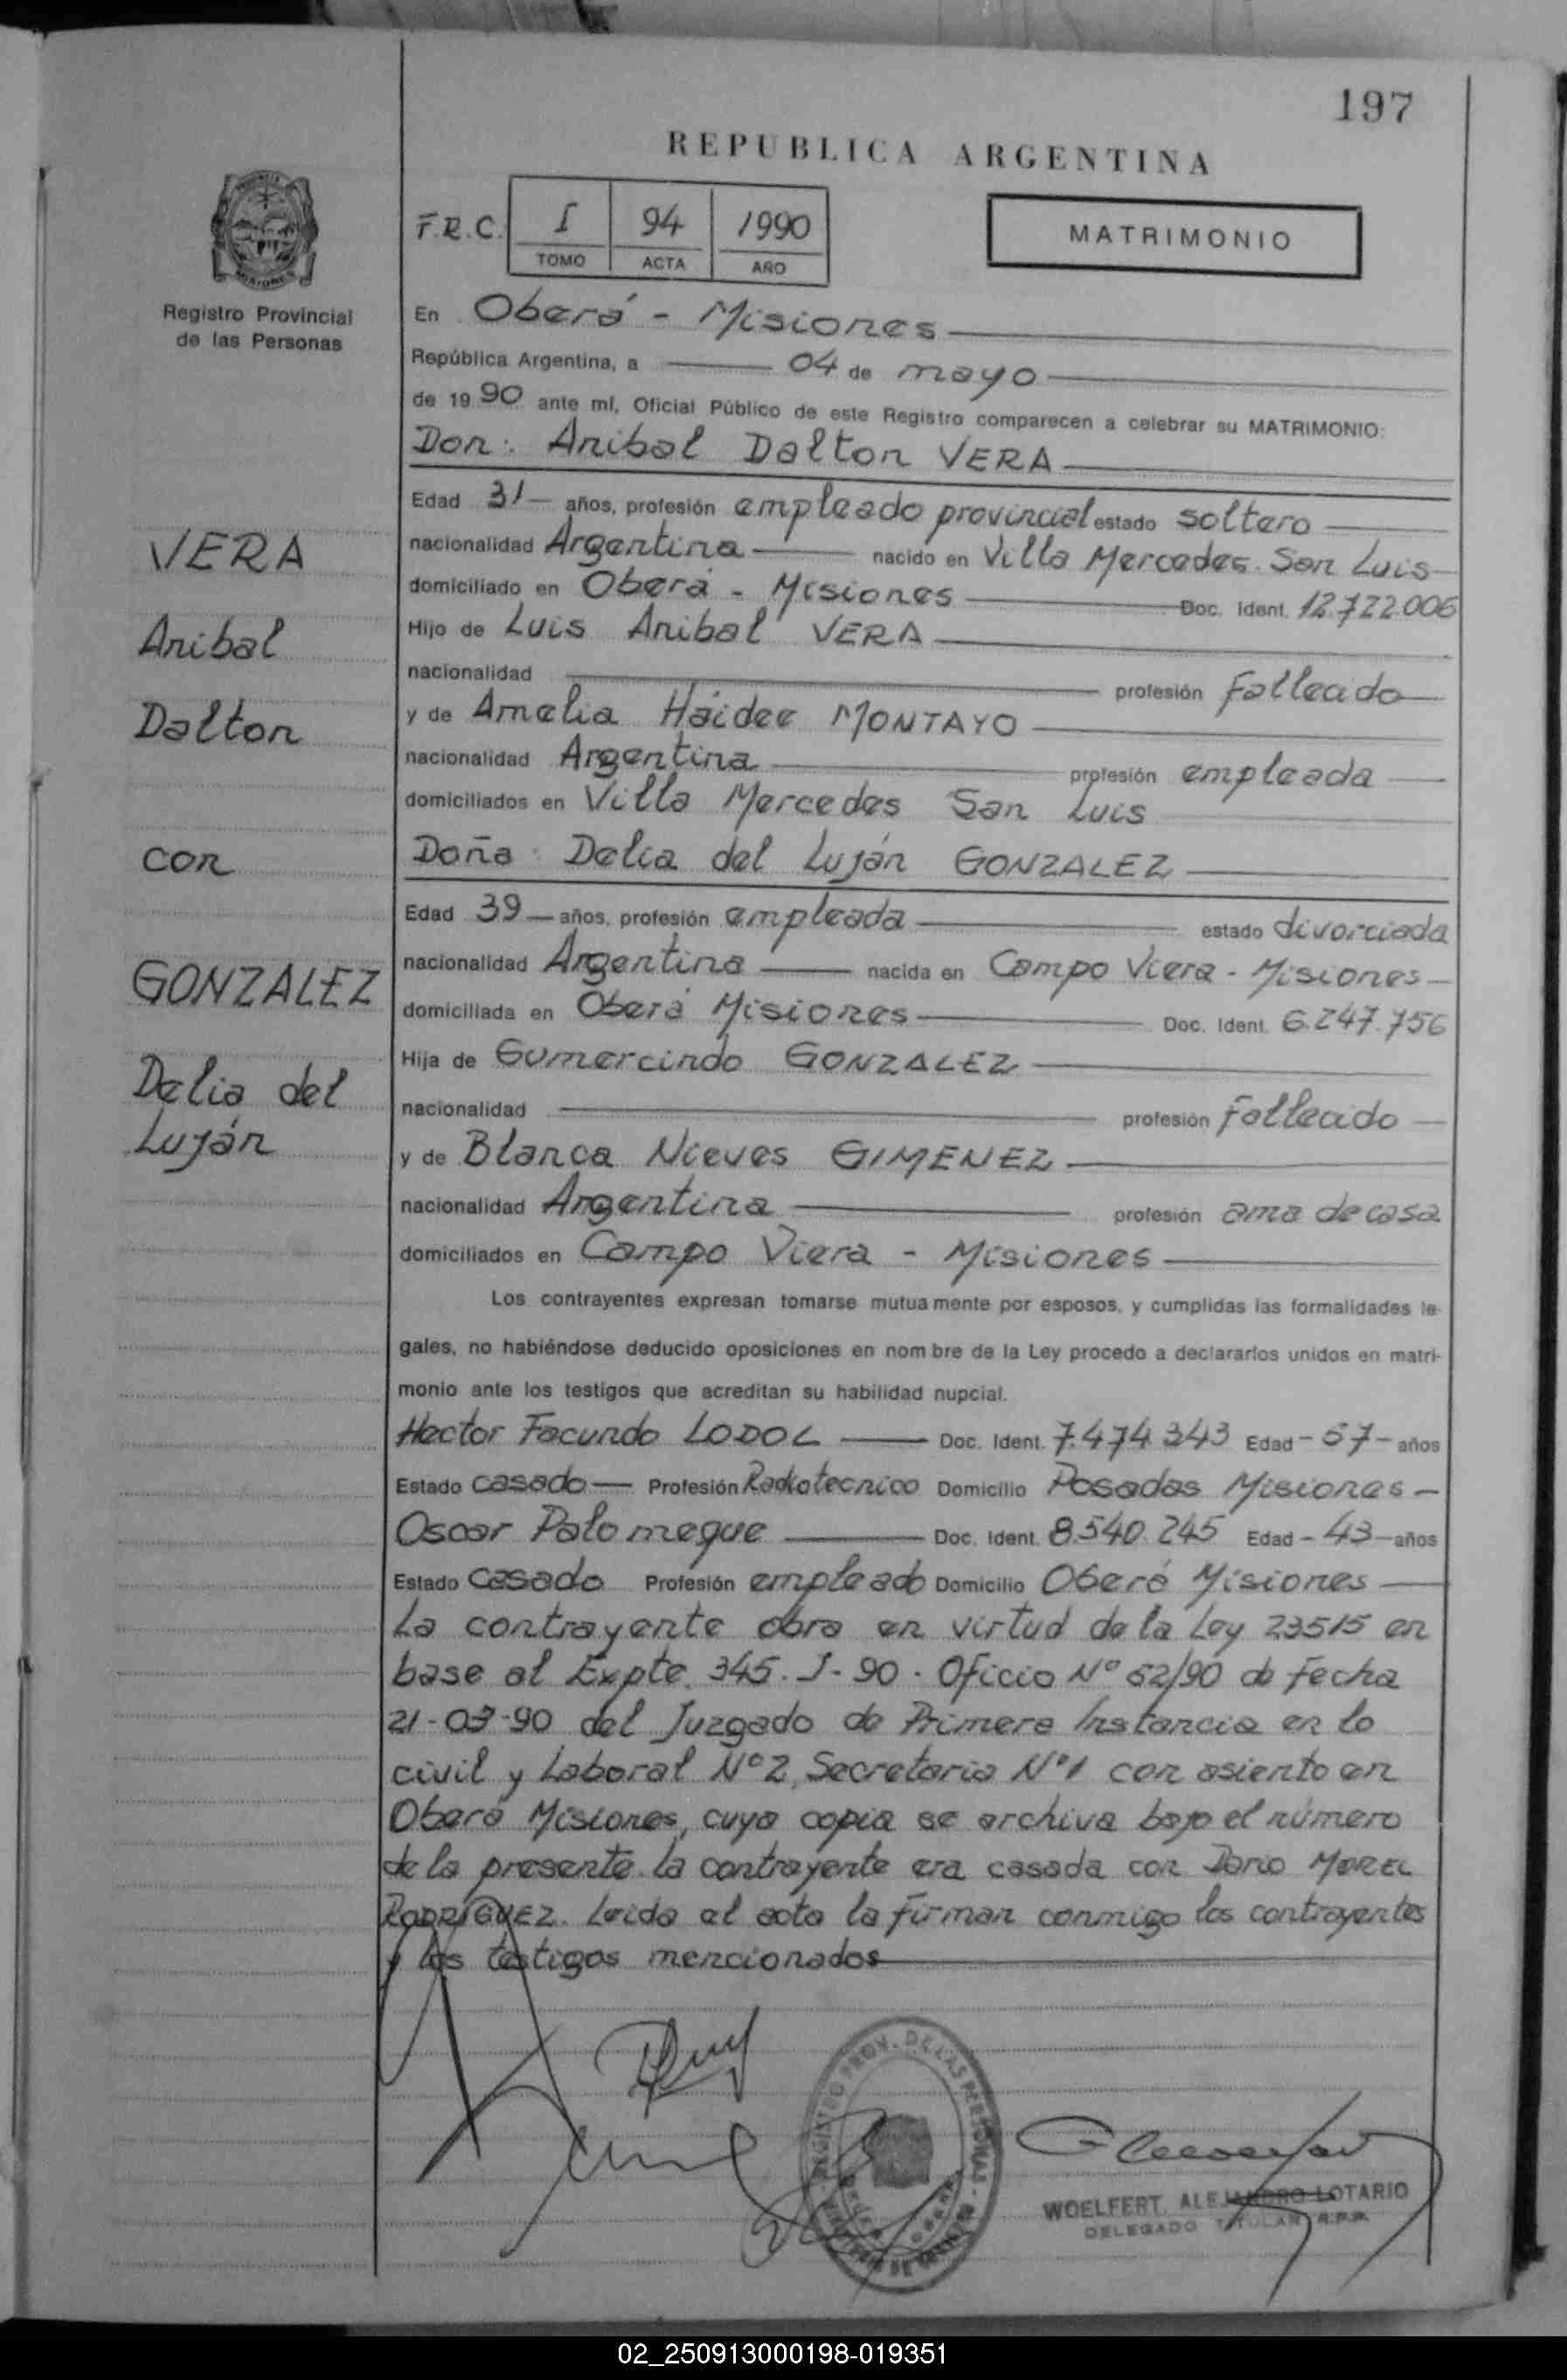 197
REPUBLICA ARGENTINA
F.R.C. I 94 1990
TOMO ACTA AÑO
MATRIMONIO
Registro Provincial
de las Personas
En Oberá - Misiones
República Argentina, a 04 de mayo
de 1990 ante mí, Oficial Público de este Registro comparecen a celebrar su MATRIMONIO:
Don: Anibal Dalton VERA
Edad 31 años, profesión empleado provincial estado soltero
nacionalidad Argentina nacido en Villa Mercedes San Luis
domiciliado en Oberá - Misiones Doc. Ident. 12.722.006
Hijo de Luis Anibal VERA
nacionalidad profesión Fallecido
y de Amelia Háidee MONTAYO
nacionalidad Argentina profesión empleada
domiciliados en Villa Mercedes San Luis
Doña: Delia del Luján GONZALEZ
Edad 39 años, profesión empleada estado divorciada
nacionalidad Argentina nacida en Campo Viera - Misiones
domiciliada en Oberá Misiones Doc. Ident. 6.247.756
Hija de Gumercindo GONZALEZ
nacionalidad profesión Fallecido
y de Blanca Nieves GIMENEZ
nacionalidad Argentina profesión ama de casa
domiciliados en Campo Viera - Misiones
Los contrayentes expresan tomarse mutuamente por esposos, y cumplidas las formalidades le-
gales, no habiéndose deducido oposiciones en nombre de la Ley procedo a declararlos unidos en matri-
monio ante los testigos que acreditan su habilidad nupcial.
Hector Facundo LODOL Doc. Ident. 7.474.343 Edad - 57 - años
Estado casado Profesión Radiotecnico Domicilio Posadas Misiones -
Oscar Palomeque Doc. Ident. 8.540.245 Edad - 43 - años
Estado casado Profesión empleado Domicilio Oberá Misiones
La contrayente obra en virtud de la Ley 23515 en
base al Expte. 345. J-90. Oficio Nº 52/90 de Fecha
21-03-90 del Juzgado de Primera Instancia en lo
civil y Laboral Nº2, Secretaria Nº1 con asiento en
Oberá Misiones, cuya copia se archiva bajo el número
de la presente. la contrayente era casada con Dario MOREL
RODRIGUEZ. Leida el acta la firman conmigo los contrayentes
y los testigos mencionados
VERA
Anibal
Dalton
con
GONZALEZ
Delia del
Luján
REGISTRO PROV. DE LAS PERSONAS
WOELFERT, ALEJANDRO LOTARIO
DELEGADO TITULAR R.P.P.
02_250913000198-019351